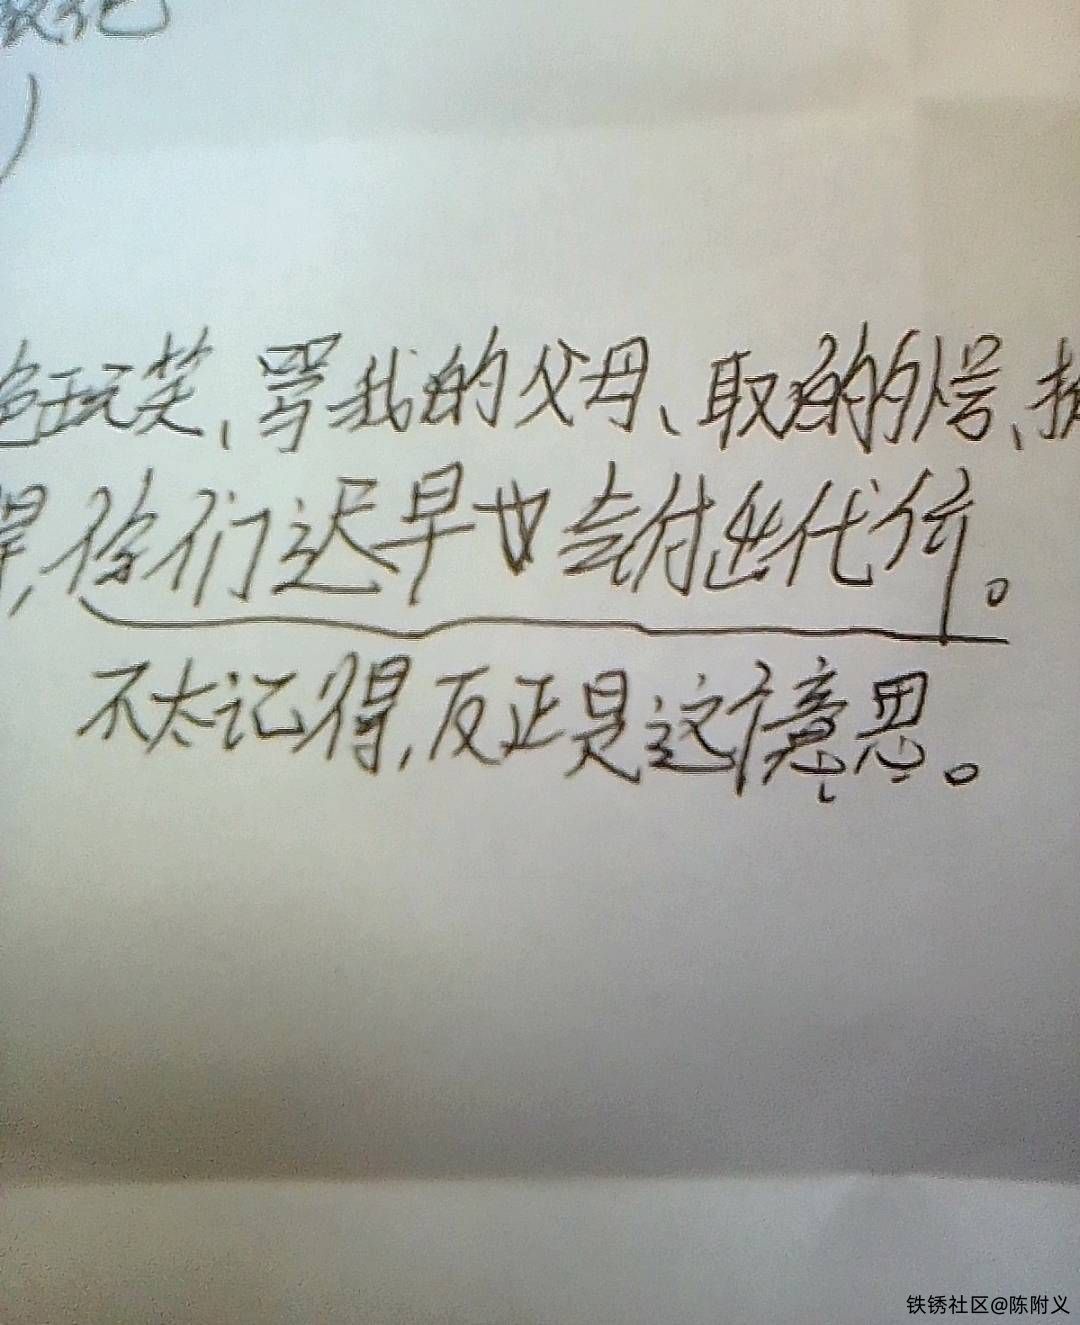 )
色玩笑、骂我的父母、取的外号、
得,你们迟早也会付出代价。
不太记得,反正是这个意思。
铁锈社区@陈附义